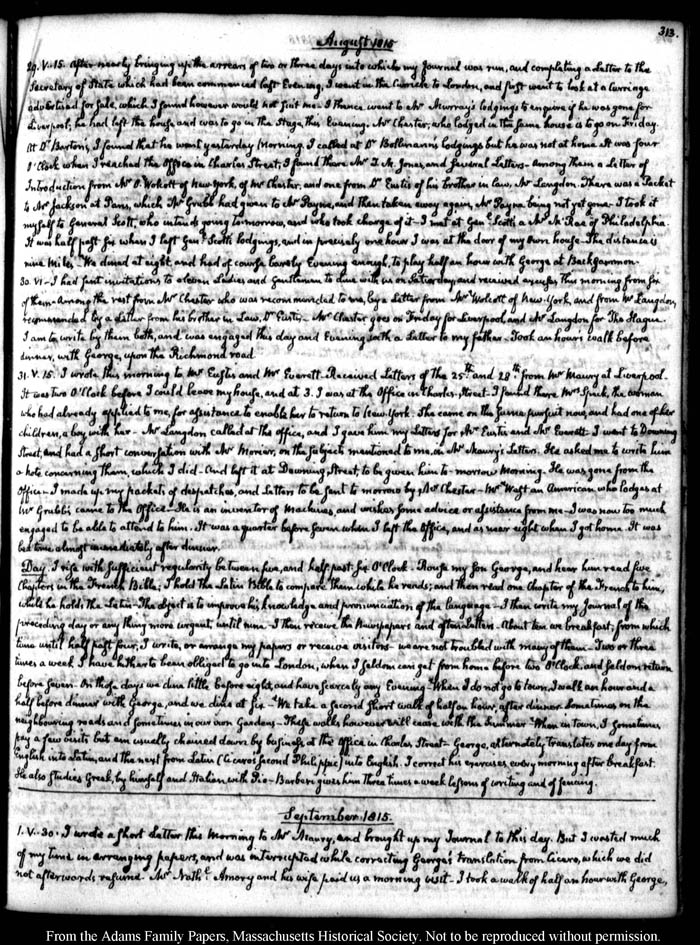 313.
August 1815
29. V.15. After nearly bringing up the arrears of two or three days into which my Journal was run, and completing a Letter to the
Secretary of State which had been commenced last Evening, I went in the Curricle to London, and first went to look at a Carriage
advertised for sale, which I found however would not suit me. I thence went to Mr Murray's lodgings to enquire if he was gone for
Liverpool, he had left the house and was to go in the Stage this Evening. Mr Chester, who lodged in the same house is to go on Friday.
At Dr Barton's, I found that he went yesterday Morning. I called at Dr Bollmann's lodgings but he was not at home. It was four
O'Clock when I reached the Office in Charles Street; I found there Mr T. M. Jones, and several Letters. Among them a Letter of
Introduction from Mr O. Wolcott of New York, of Mr Chester, and one from Dr Eustis of his brother in law, Mr Langdon. There was a Packet
to Mr Jackson at Paris, which Mr Grubb had given to Mr Payne, and then taken away again, Mr Payne being not yet gone. I took it
myself to General Scott, who intends going tomorrow, and who took charge of it. I met at Genl Scott's a Mr McRae of Philadelphia.
It was half past six when I left Genl Scott's lodgings, and in precisely one hour I was at the door of my own house. The distance is
nine Miles. We dined at eight, and had of course barely Evening enough, to play half an hour with George at Backgammon.
30. VI. I had sent invitations to eleven Ladies and Gentlemen to dine with us on Saturday, and received excuses this morning from six
of them. Among the rest from Mr Chester who was recommended to me, by a Letter from Mr Wolcott of New-York, and from Mr Langdon,
recommended by a Letter from his brother in Law, Dr Eustis. Mr Chester goes on Friday for Liverpool, and Mr Langdon for The Hague.
I am to write by them both, and was engaged this day and Evening with a Letter to my father. Took an hour's walk before
dinner, with George, upon the Richmond road.
31. V.15. I wrote this morning to Mr Eustis and Mr Everett. Received Letters of the 25th and 28th from Mr Maury at Liverpool.
It was two O'Clock before I could leave my house, and at 3. I was at the Office in Charles-Street. I found there Mrs the woman
who had already applied to me, for assistance to enable her to return to New York. She came on the same pursuit now, and had one of her
children, a boy with her. Mr Langdon called at the office, and I gave him my Letters for Mr Eustis and Mr Everett. I went to Downing
Street, and had a short conversation with Mr Morier, on the subjects mentioned to me, in Mr Maury's Letters. He asked me to write him
a note concerning them, which I did. And left it at Downing Street, to be given him to-morrow Morning. He was gone from the
Office. I made up my packets of despatches, and Letters to be sent to morrow by Mr Chester. Mr Wast an American, who lodges at
Mr Grubb's came to the Office. He is an inventor of Machines, and wishes some advice or assistance from me. I was now too much
engaged to be able to attend to him. It was a quarter before seven when I left the Office, and as near eight when I got home. It was
bed time almost immediately after dinner.
Day. I rise with sufficient regularity between five, and half past six O'Clock. Rouse my Son George, and hear him read five
Chapters in the French Bible; I hold the Latin Bible to compare them while he reads; and then read one Chapter of the French to him,
while he holds the Latin. The object is to improve his knowledge and pronunciation of the language. I then write my Journal of the
preceding day or any thing more urgent, until nine. I then receive the Newspapers and often Letters. About ten we breakfast, from which
time until half past four, I write, or arrange my papers or receive visitors. we are not troubled with many of them. Two or three
times a week I have hitherto been obliged to go into London, when I seldom can get from home before two O'Clock and seldom return
before seven. On those days we dine little before eight, and have scarcely any Evening. When I do not go to town, I walk an hour and a
half before dinner with George, and we dine at six. We take a second short walk of half an hour, after dinner. Sometimes on the
neighbouring roads and sometimes in our own Gardens. These walks however will cease with the Summer. When in town, I sometimes
pay a few visits but am usually chained down by business at the Office in Charles Street. George, alternately translates one day from
English into Latin, and the next from Latin (Cicero's second Philippic) into English. I correct his exercises every morning after breakfast.
He also studies Greek, by himself and Italian, with Pio. Barbieri gives him three times a week lessons of writing and of fencing.
September 1815.
1. V.30. I wrote a short Letter this Morning to Mr Maury, and brought up my Journal to this day. But I wasted much
of my time in arranging papers, and was interrupted while correcting George's translation from Cicero, which we did
not afterwards resume. Mr Nathl Amory and his wife paid us a morning visit. I took a walk of half an hour with George,
From the Adams Family Papers, Massachusetts Historical Society. Not to be reproduced without permission.